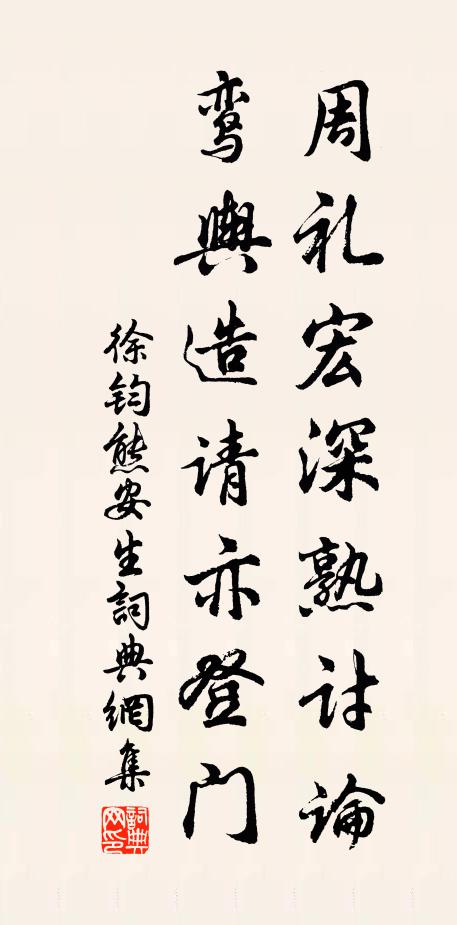 周礼宏深熟讨论
鸾舆造请亦登门
徐钧熊安生詞典網集
詞典网印